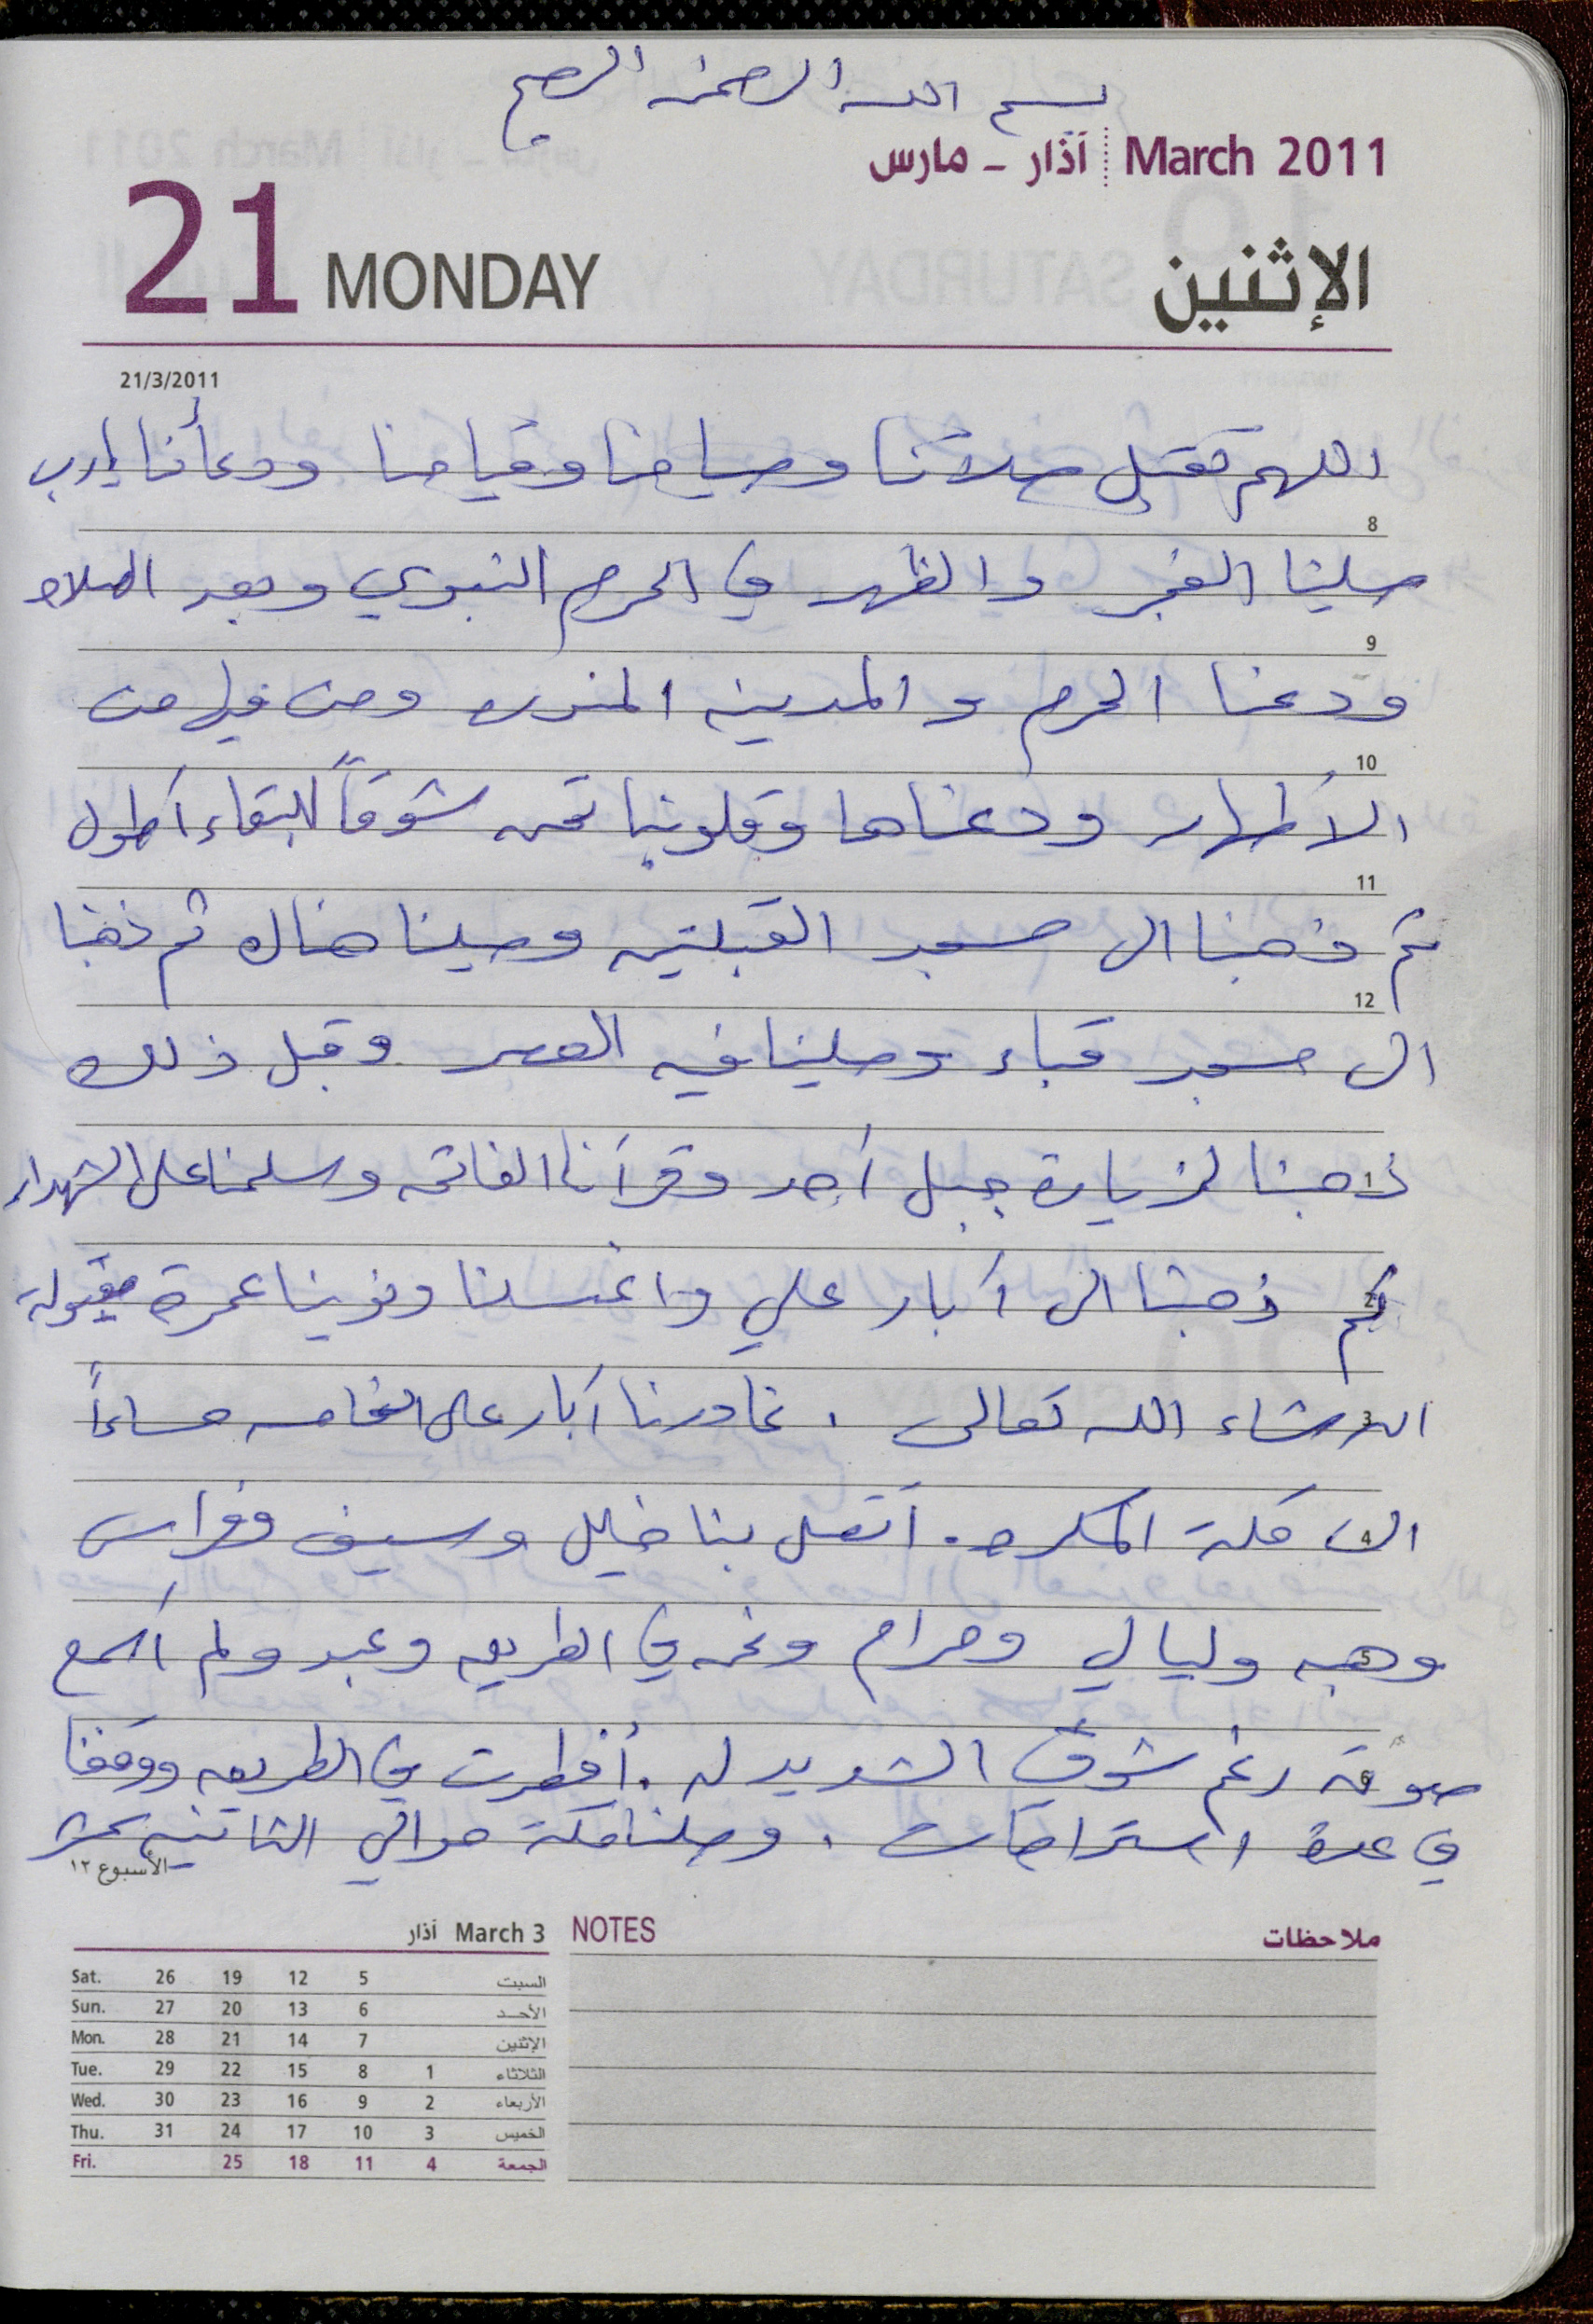 بسم الله الرحمن الرحيم
March 2011 آذار - مارس
21 MONDAY الإثنين
21/3/2011
اللهم تقبل صلاتنا وصيامنا وقيامنا ودعأنا يارب
8
صلينا الفجر والظهر في الحرم النبوي وبعد الصلاه
9
ودعنا الحرم والمدينه المنوره ومن فيها من
10
الأطهار ودعناها وقلوبنا تحن شوقاً للبقاء أطول
11
ثم ذهبنا الى مسجد القبلتين وصلينا هناك ثم ذهبنا
12
الى مسجد قباء وصلينا فيه العصر وقبل ذلك
1
ذهبنا لزيارة جبل أحد وقرأنا الفاتحه وسلمنا على الشهداء
2
ثم ذهبنا الى أبار علي واغتسلنا ونوينا عمرة مقبولة
3
انشاء الله تعالى . غادرنا أبار على الخامسه مساءاً
4
الى مكة المكرمه . أتصل بنا خليل وسيف وفراس
5
وهبه وليالي ومرام ونحن في الطريق وعبد ولم أسمع
6
صوته رغم شوقي الشديد له . أفطرت في الطريق ووقفنا
في عدة استراحات . وصلنا مكة حوالي الثانيه عشر
الأسبوع ١٢
March 3 آذار
NOTES ملاحظات
Sat. 26 19 12 5 السبت
Sun. 27 20 13 6 الأحـد
Mon. 28 21 14 7 الإثنين
Tue. 29 22 15 8 1 الثلاثاء
Wed. 30 23 16 9 2 الأربعاء
Thu. 31 24 17 10 3 الخميس
Fri. 25 18 11 4 الجمعة